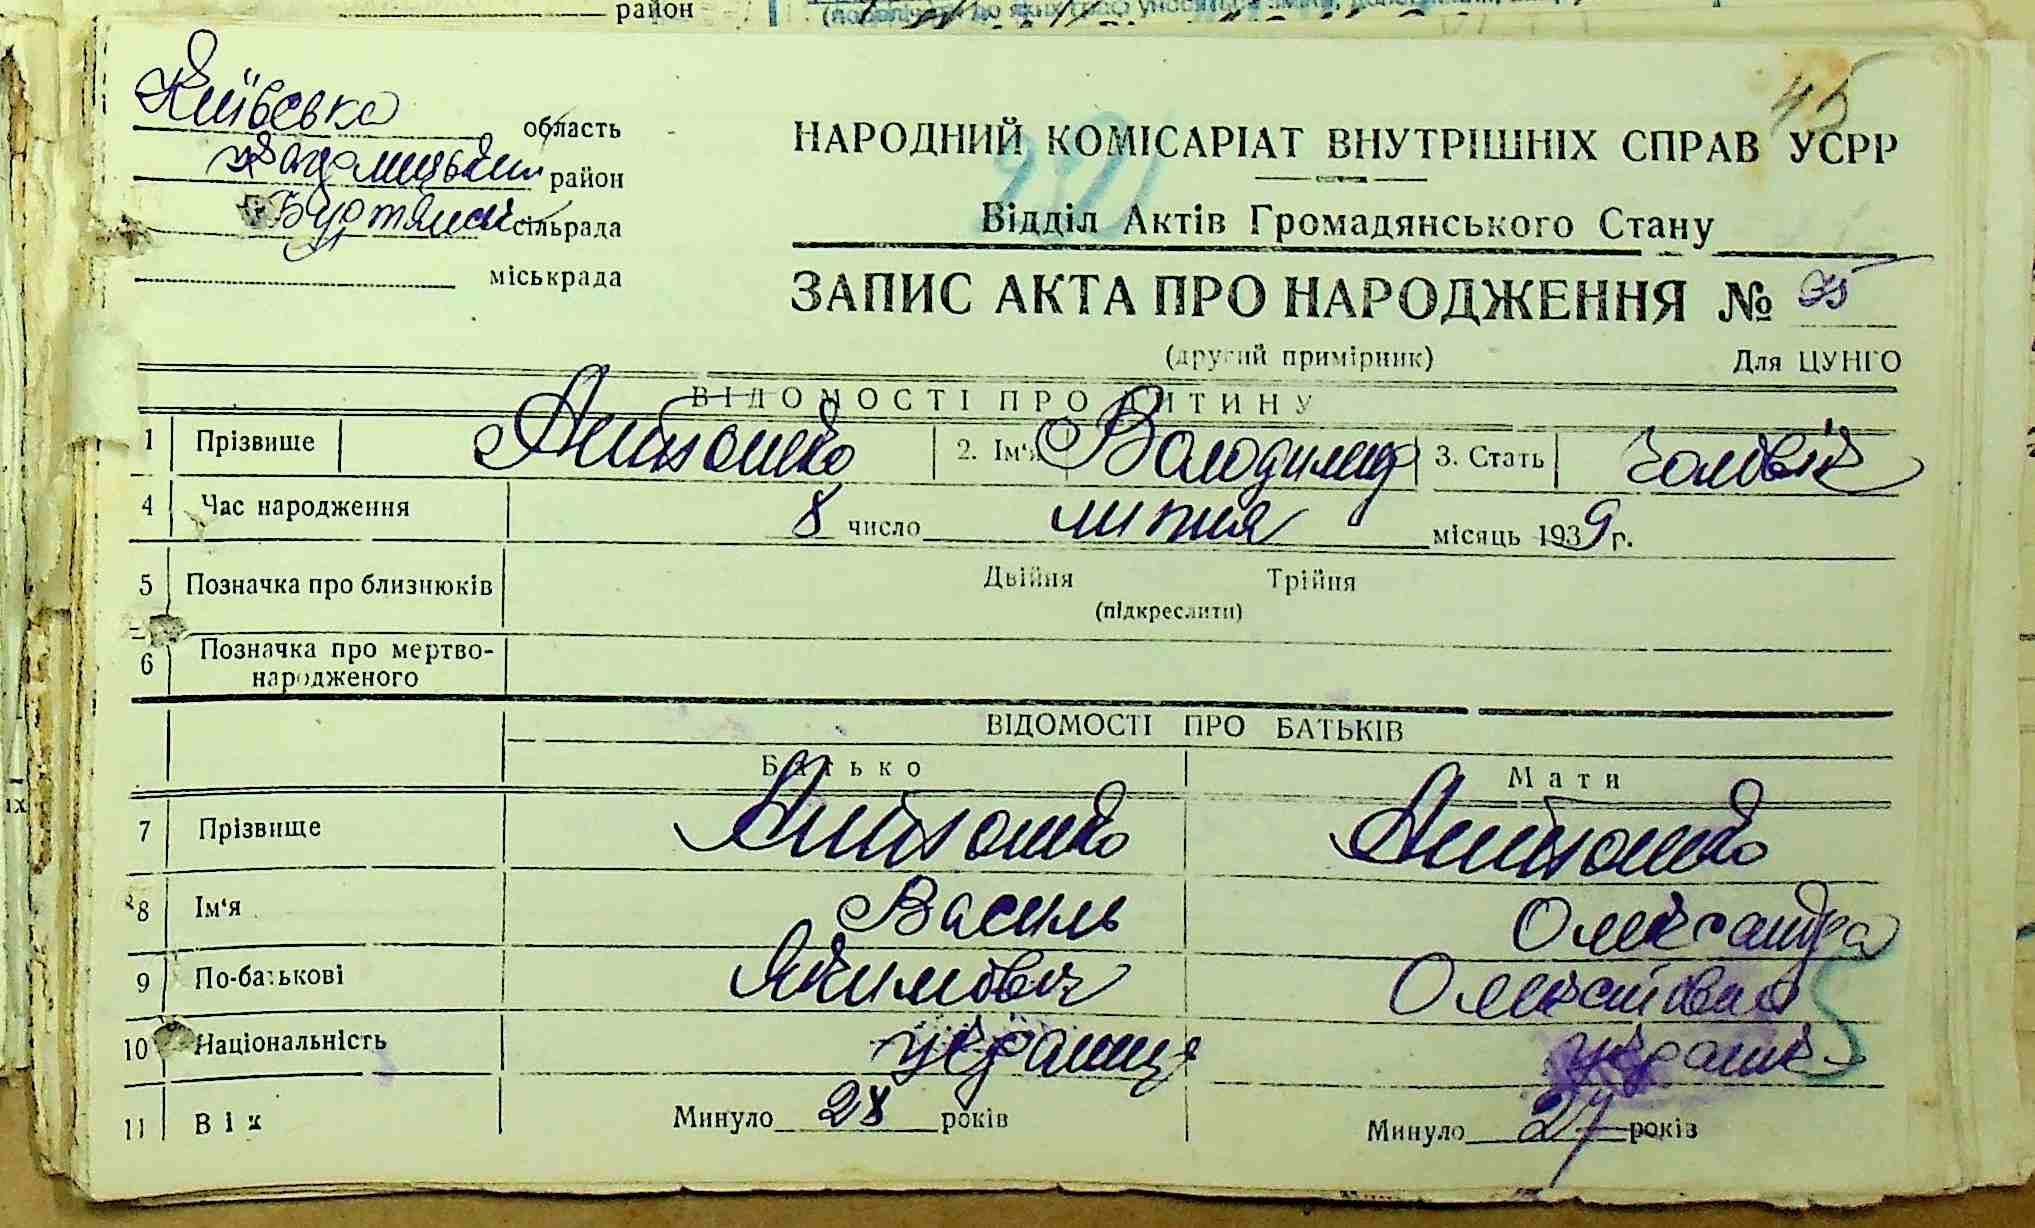 район
45
Київська область
район
сільрада
міськрада
НАРОДНИЙ КОМІСАРІАТ ВНУТРІШНІХ СПРАВ УСРР
Відділ Актів Громадянського Стану
ЗАПИС АКТА ПРО НАРОДЖЕННЯ №
(другий примірник) Для ЦУНГО
ВІДОМОСТІ ПРО ДИТИНУ
1 Прізвище Антошко 2. Ім'я Володимир 3. Стать чоловік
4 Час народження 8 число липня місяць 1939 г.
5 Позначка про близнюків Двійня Трійня
(підкреслити)
6 Позначка про мертво-
народженого
ВІДОМОСТІ ПРО БАТЬКІВ
Батько Мати
7 Прізвище Антошко Антошко
8 Ім'я Василь Олександра
9 По-батькові Якимович
10 Національність українц
11 Вік Минуло 28 років Минуло 27 років